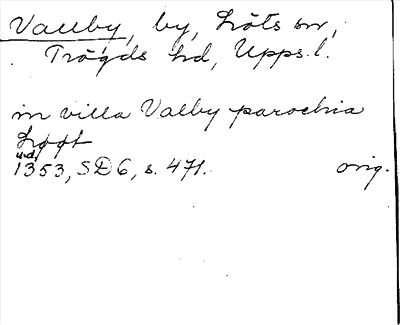 Vallby, by, Löts sn,
Trögds hd, Upps.l.
in villa Valby parochia
Løøt
u.d.
1353, SD 6, s. 471. orig.